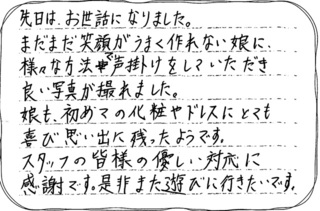 先日は、お世話になりました。
まだまだ笑顔がうまく作れない娘に、
様々な方法で声掛けをしていただき
良い写真が撮れました。
娘も、初めての化粧やドレスにとても
喜び思い出に残ったようです。
スタッフの皆様の優しい対応に
感謝です。是非また遊びに行きたいです。